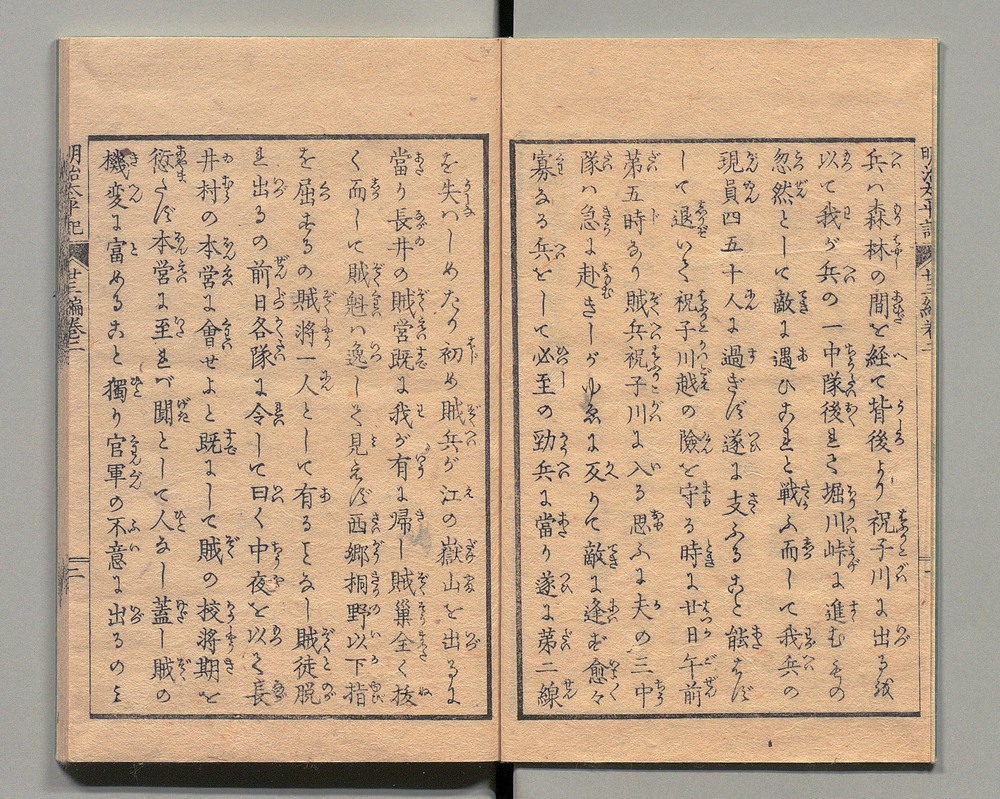 明治太平記 廿三編卷二 一
兵ハ森林の間を経て背後より祝子川に出る我
以て我が兵の一中隊後れて堀川峠に進むもの
忽然として敵に遇ひこれと戦ふ而して我兵の
現員四五十人に過ぎず遂に支ふること能はず
して退いて祝子川越の險を守る時に廿日午前
第五時なり賊兵祝子川に入る思ふに夫の三中
隊ハ急に赴きしがゆゑに反りて敵に逢ず愈々
寡なる兵をして必至の勁兵に當り遂に第二線
を失ハしめたり初め賊兵が江の嶽山を出るに
當り長井の賊営既に我が有に帰し賊巢全く抜
く而して賊魁ハ逸しさ見えず西郷桐野以下指
を屈するの賊将一人として有ることなし賊徒脱
れ出るの前日各隊に令して曰く中夜を以て長
井村の本営に會せよと既にして賊の校将期を
愆たず本営に至れバ闃として人なし蓋し賊の
機変に富めること獨り官軍の不意に出るのミ
明治太平記 廿三編卷二 二